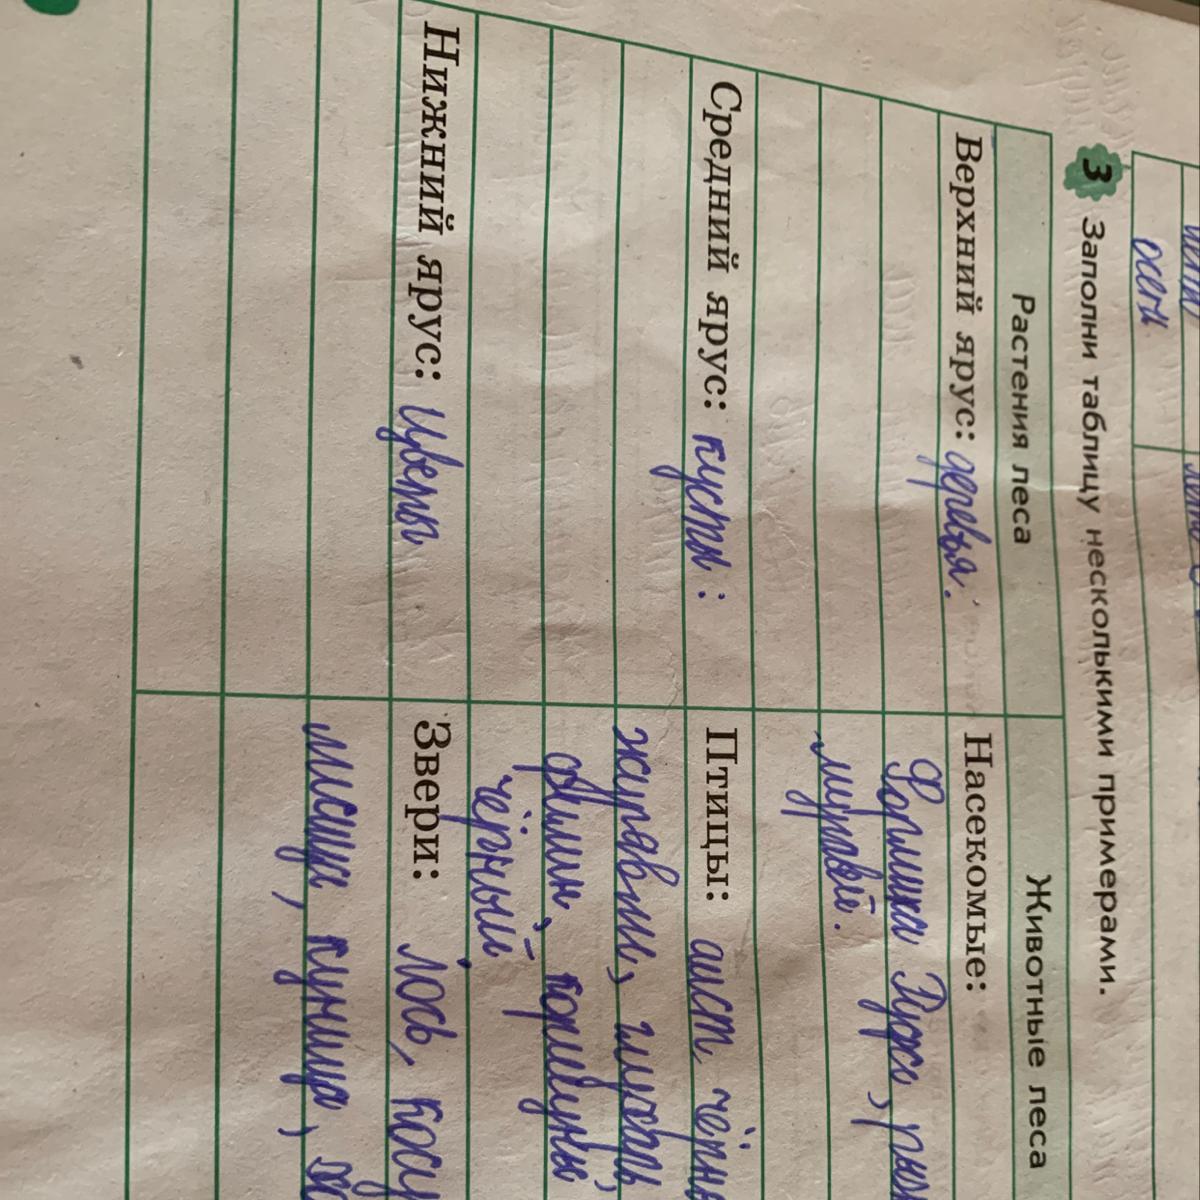 осень
3 Заполни таблицу несколькими примерами.
Растения леса
Животные леса
Верхний ярус: деревья.
Насекомые:
Формика Руфа,
муравей.
Средний ярус: кусты :
Птицы: аист чёрн
журавли, глухарь,
филин,
чёрный
Нижний ярус: Цветы
Звери: лось, косу
лисица, куница,